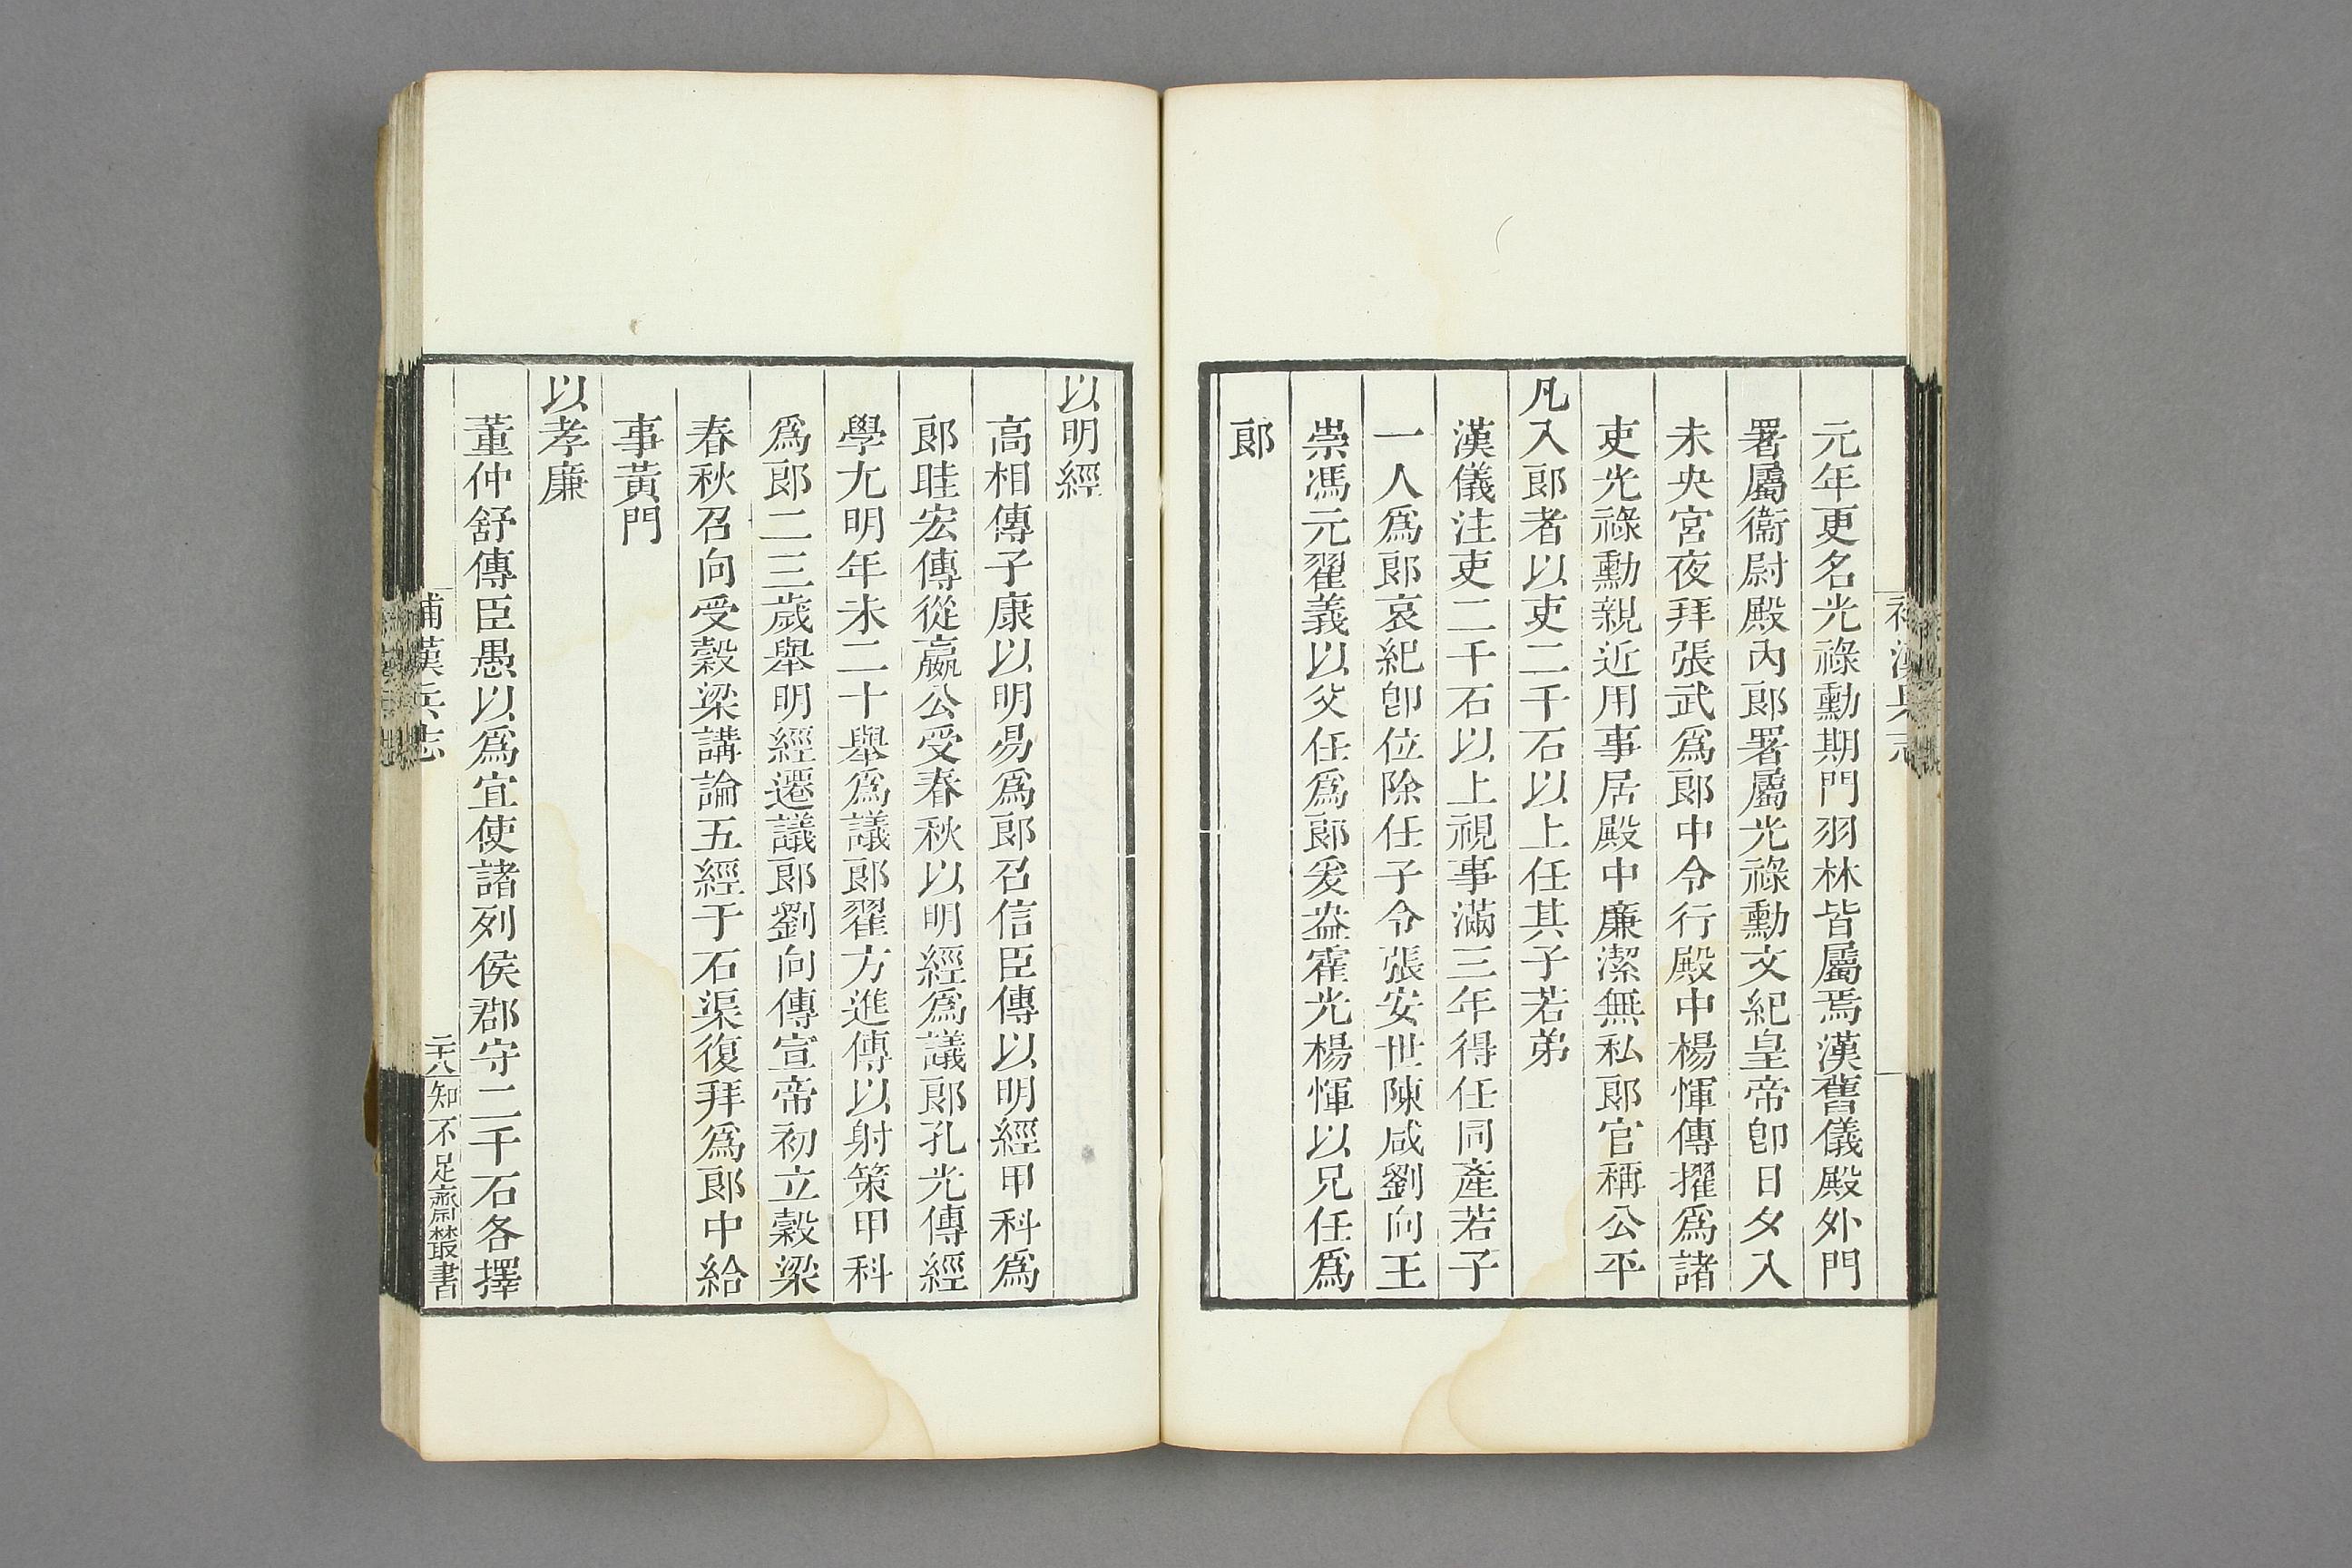 元年更名光祿勳期門羽林皆屬焉漢舊儀殿外門
署屬衞尉殿內郞署屬光祿勳文紀皇帝卽日夕入
未央宮夜拜張武爲郞中令行殿中楊惲傳擢爲諸
吏光祿勳親近用事居殿中廉潔無私郞官稱公平
凡入郞者以吏二千石以上任其子若弟
漢儀注吏二千石以上視事滿三年得任同產若子
一人爲郞哀紀卽位除任子令張安世陳咸劉向王
崇馮元翟義以父任爲郞爰盎霍光楊惲以兄任爲
郞
以明經
高相傳子康以明易爲郞召信臣傳以明經甲科爲
郞眭宏傳從嬴公受春秋以明經爲議郞孔光傳經
學尢明年未二十舉爲議郞翟方進傳以射策甲科
爲郞二三歲舉明經遷議郞劉向傳宣帝初立穀梁
春秋召向受穀梁講論五經于石渠復拜爲郞中給
事黃門
以孝廉
董仲舒傳臣愚以爲宜使諸列侯郡守二千石各擇
補漢兵志
二十八
知不足齋叢書